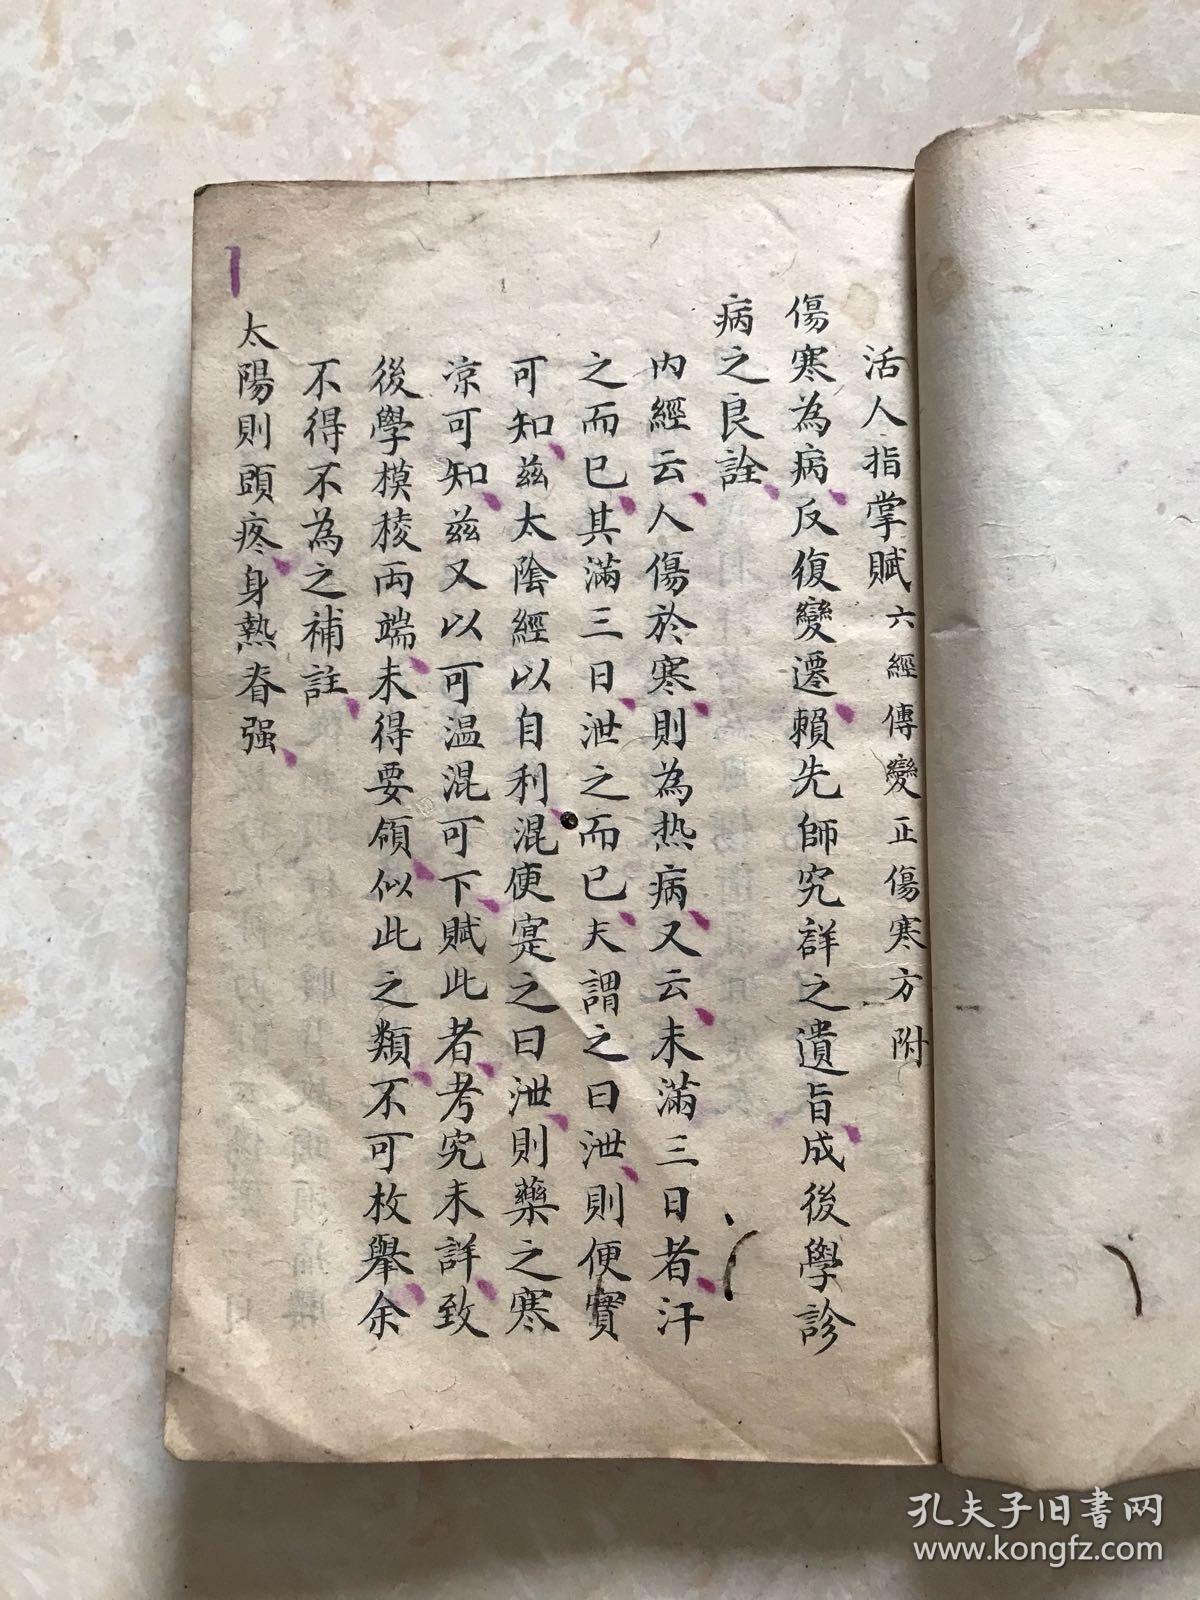 活人指掌賦六經傳變正傷寒方附
傷寒為病反復變遷賴先師究詳之遺旨成後學診
病之良詮
內經云人傷於寒則為热病又云未滿三日者汗
之而已其滿三日泄之而已夫謂之曰泄則便實
可知茲太陰經以自利混便寔之曰泄則藥之寒
凉可知茲又以可温混可下賦此者考究未詳致
後學模稜両端未得要領似此之類不可枚舉余
不得不為之補註
太陽則頭疼身熱脊强
孔夫子旧书网
www.kongfz.com